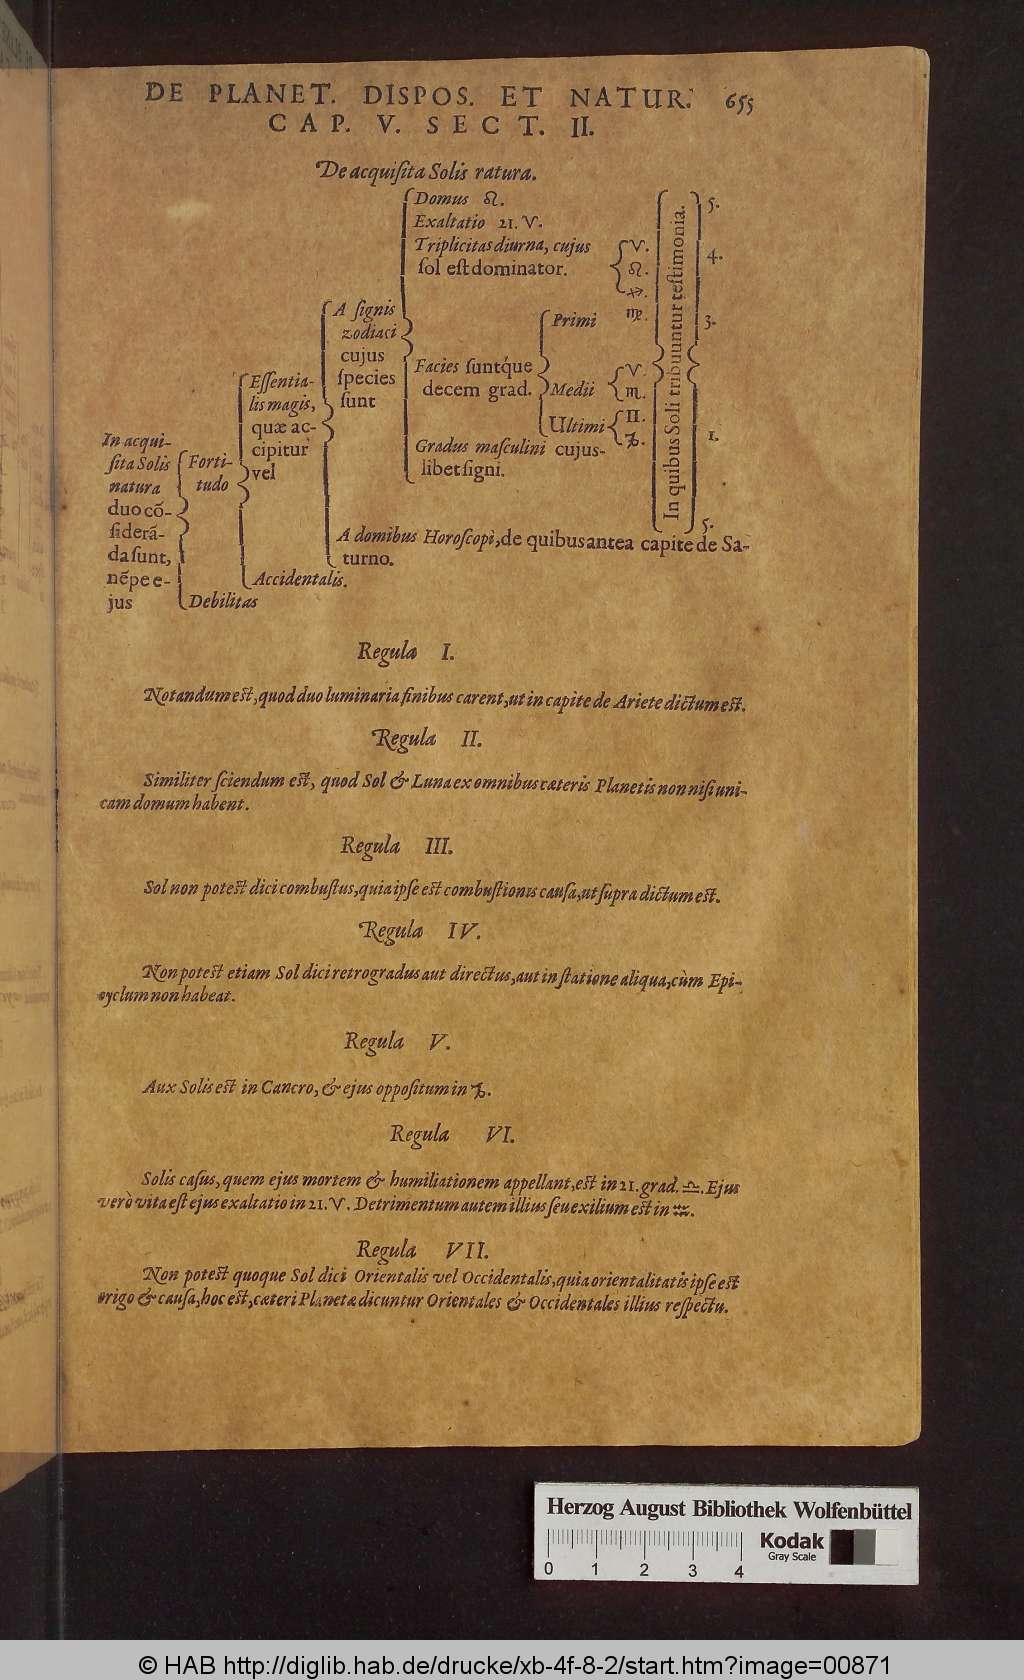 DE PLANET. DISPOS. ET NATUR. 655
CAP. V. SECT. II.
De acquiſita Solis ratura.
Domus ♌.
Exaltatio 21. ♈.
Triplicitas diurna, cujus
ſol eſt dominator.
♈.
♌.
♐.
A ſignis
zodiaci
cujus
ſpecies
ſunt
Facies ſuntq́ue
decem grad.
Primi ♍.
Medii
♈.
♏.
Ultimi
♊.
♑.
Gradus maſculini cujus-
libet ſigni.
In quibus Soli tribuuntur teſtimonia.
5.
4.
3.
1.
5.
In acqui-
ſita Solis
natura
duo cō-
ſiderā-
da ſunt,
nēpe e-
jus
Forti-
tudo
Eſſentia-
lis magis,
quæ ac-
cipitur
vel
A domibus Horoſcopi, de quibus antea capite de Sa-
turno.
Accidentalis.
Debilitas
Regula I.
Notandum eſt, quod duo luminaria finibus carent, ut in capite de Ariete dictum eſt.
Regula II.
Similiter ſciendum eſt, quod Sol & Luna ex omnibus cæteris Planetis non niſi uni-
cam domum habent.
Regula III.
Sol non poteſt dici combuſtus, quia ipſe eſt combuſtionis cauſa, ut ſupra dictum eſt.
Regula IV.
Non poteſt etiam Sol dici retrogradus aut directus, aut in ſtatione aliqua, cùm Epi-
cyclum non habeat.
Regula V.
Aux Solis eſt in Cancro, & ejus oppoſitum in ♑.
Regula VI.
Solis caſus, quem ejus mortem & humiliationem appellant, eſt in 21. grad. ♎. Ejus
verò vita eſt ejus exaltatio in 21. ♈. Detrimentum autem illius ſeu exilium eſt in ♒.
Regula VII.
Non poteſt quoque Sol dici Orientalis vel Occidentalis, quia orientalitatis ipſe eſt
origo & cauſa, hoc eſt, cæteri Planetæ dicuntur Orientales & Occidentales illius reſpectu.
Herzog August Bibliothek Wolfenbüttel
Kodak
Gray Scale
0 1 2 3 4
© HAB http://diglib.hab.de/drucke/xb-4f-8-2/start.htm?image=00871